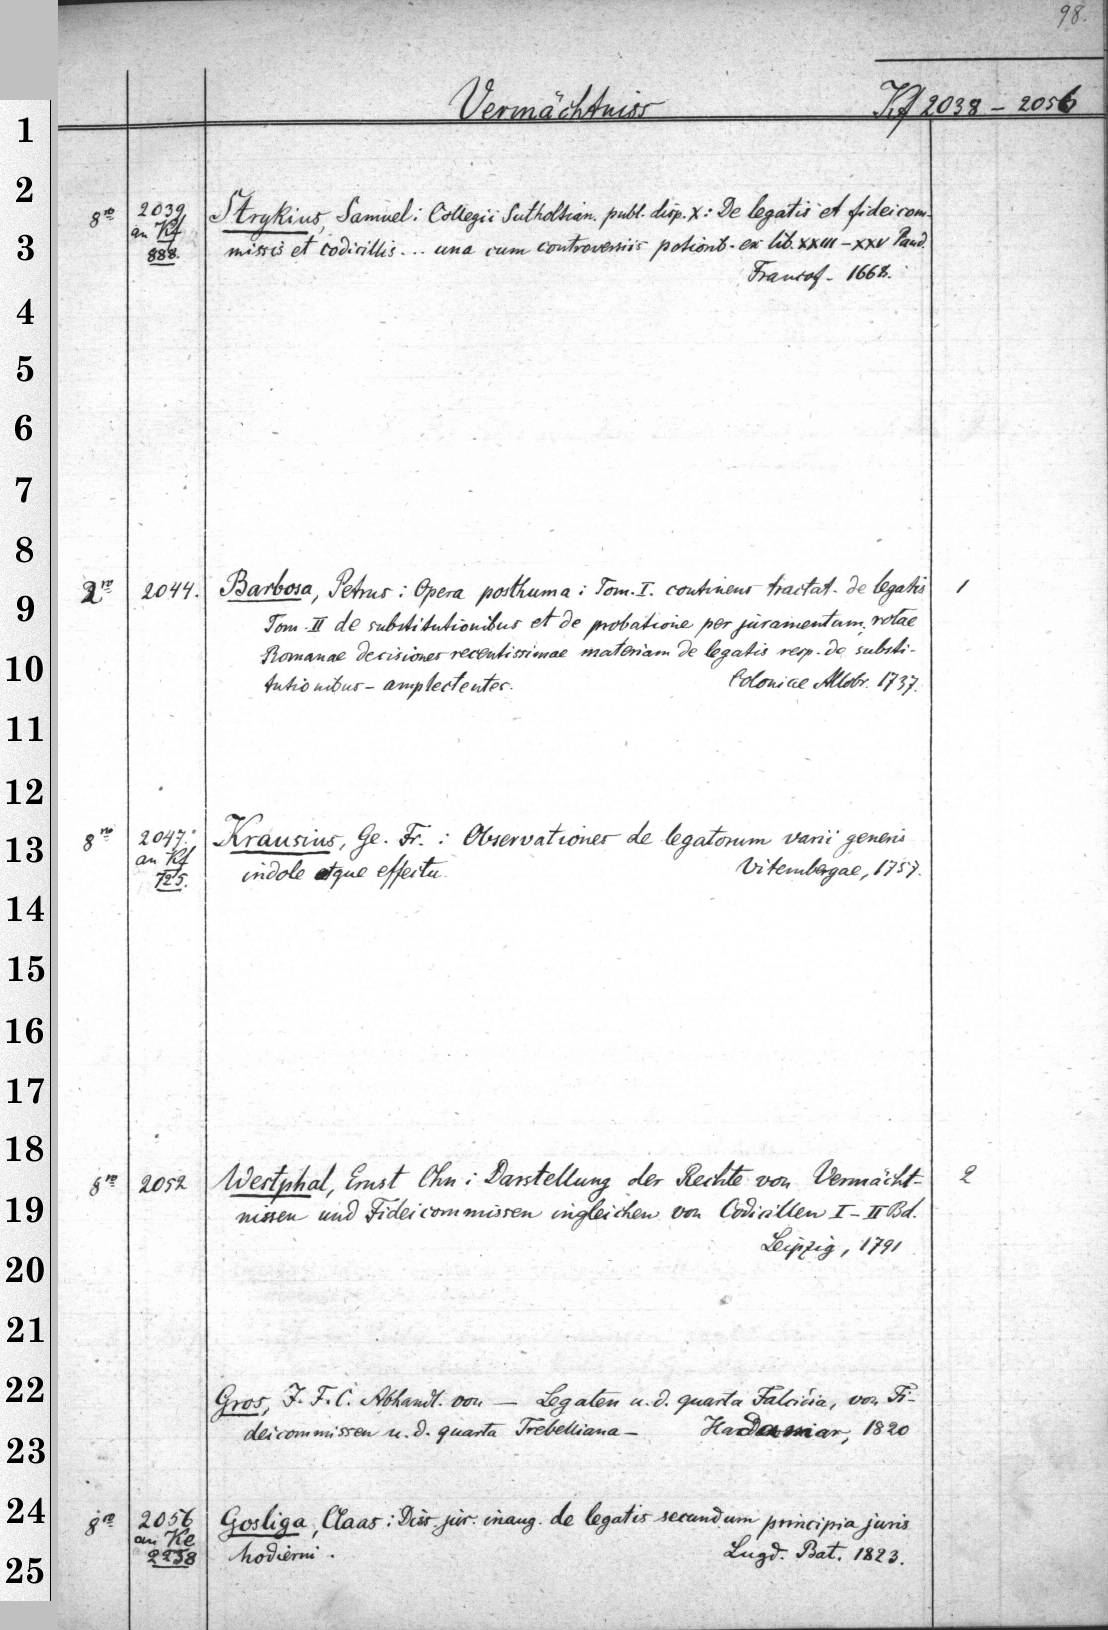 98.
Vermächtniss Kf 2038 – 2056
1
2
3
4
5
6
7
8
9
10
11
12
13
14
15
16
17
18
19
20
21
22
23
24
25
8ro 2039 Strykius, Samuel: Collegii Sutholtian. publ. disp. X: De legatis et fideicom-
an Kf
888. missis et codicillis... una cum controversiis potiorib. ex lib. XXIII – XXV Pand.
Francof. 1668.
2ro 2044. Barbosa, Petrus: Opera posthuma: Tom. I. continens tractat. de legatis 1
Tom. II de substitutionibus et de probatione per juramentum, rotae
Romanae decisiones recentissimae materiam de legatis resp. de substi-
tutionibus – amplectentes. Coloniae Allobr. 1737.
8ro 2047. Krausius, Ge. Fr.: Observationes de legatorum varii generis
an Kf
725. indole atque effectu Vitembergae, 1757.
8ro 2052 Westphal, Ernst Chn: Darstellung der Rechte von Vermächt- 2
nissen und Fideicommissen ingleichen von Codicillen I – II Bd.
Leipzig, 1791
Gros, J. F. C. Abhandl. von — Legaten u. d. quarta Falcidia, von Fi-
deicommissen u. d. quarta Trebelliana – 1820
8ro 2056 Gosliga, Claas: Diss. jur. inaug. de legatis secundum principia juris
an Ke
2238 hodierni. Lugd. Bat. 1823.